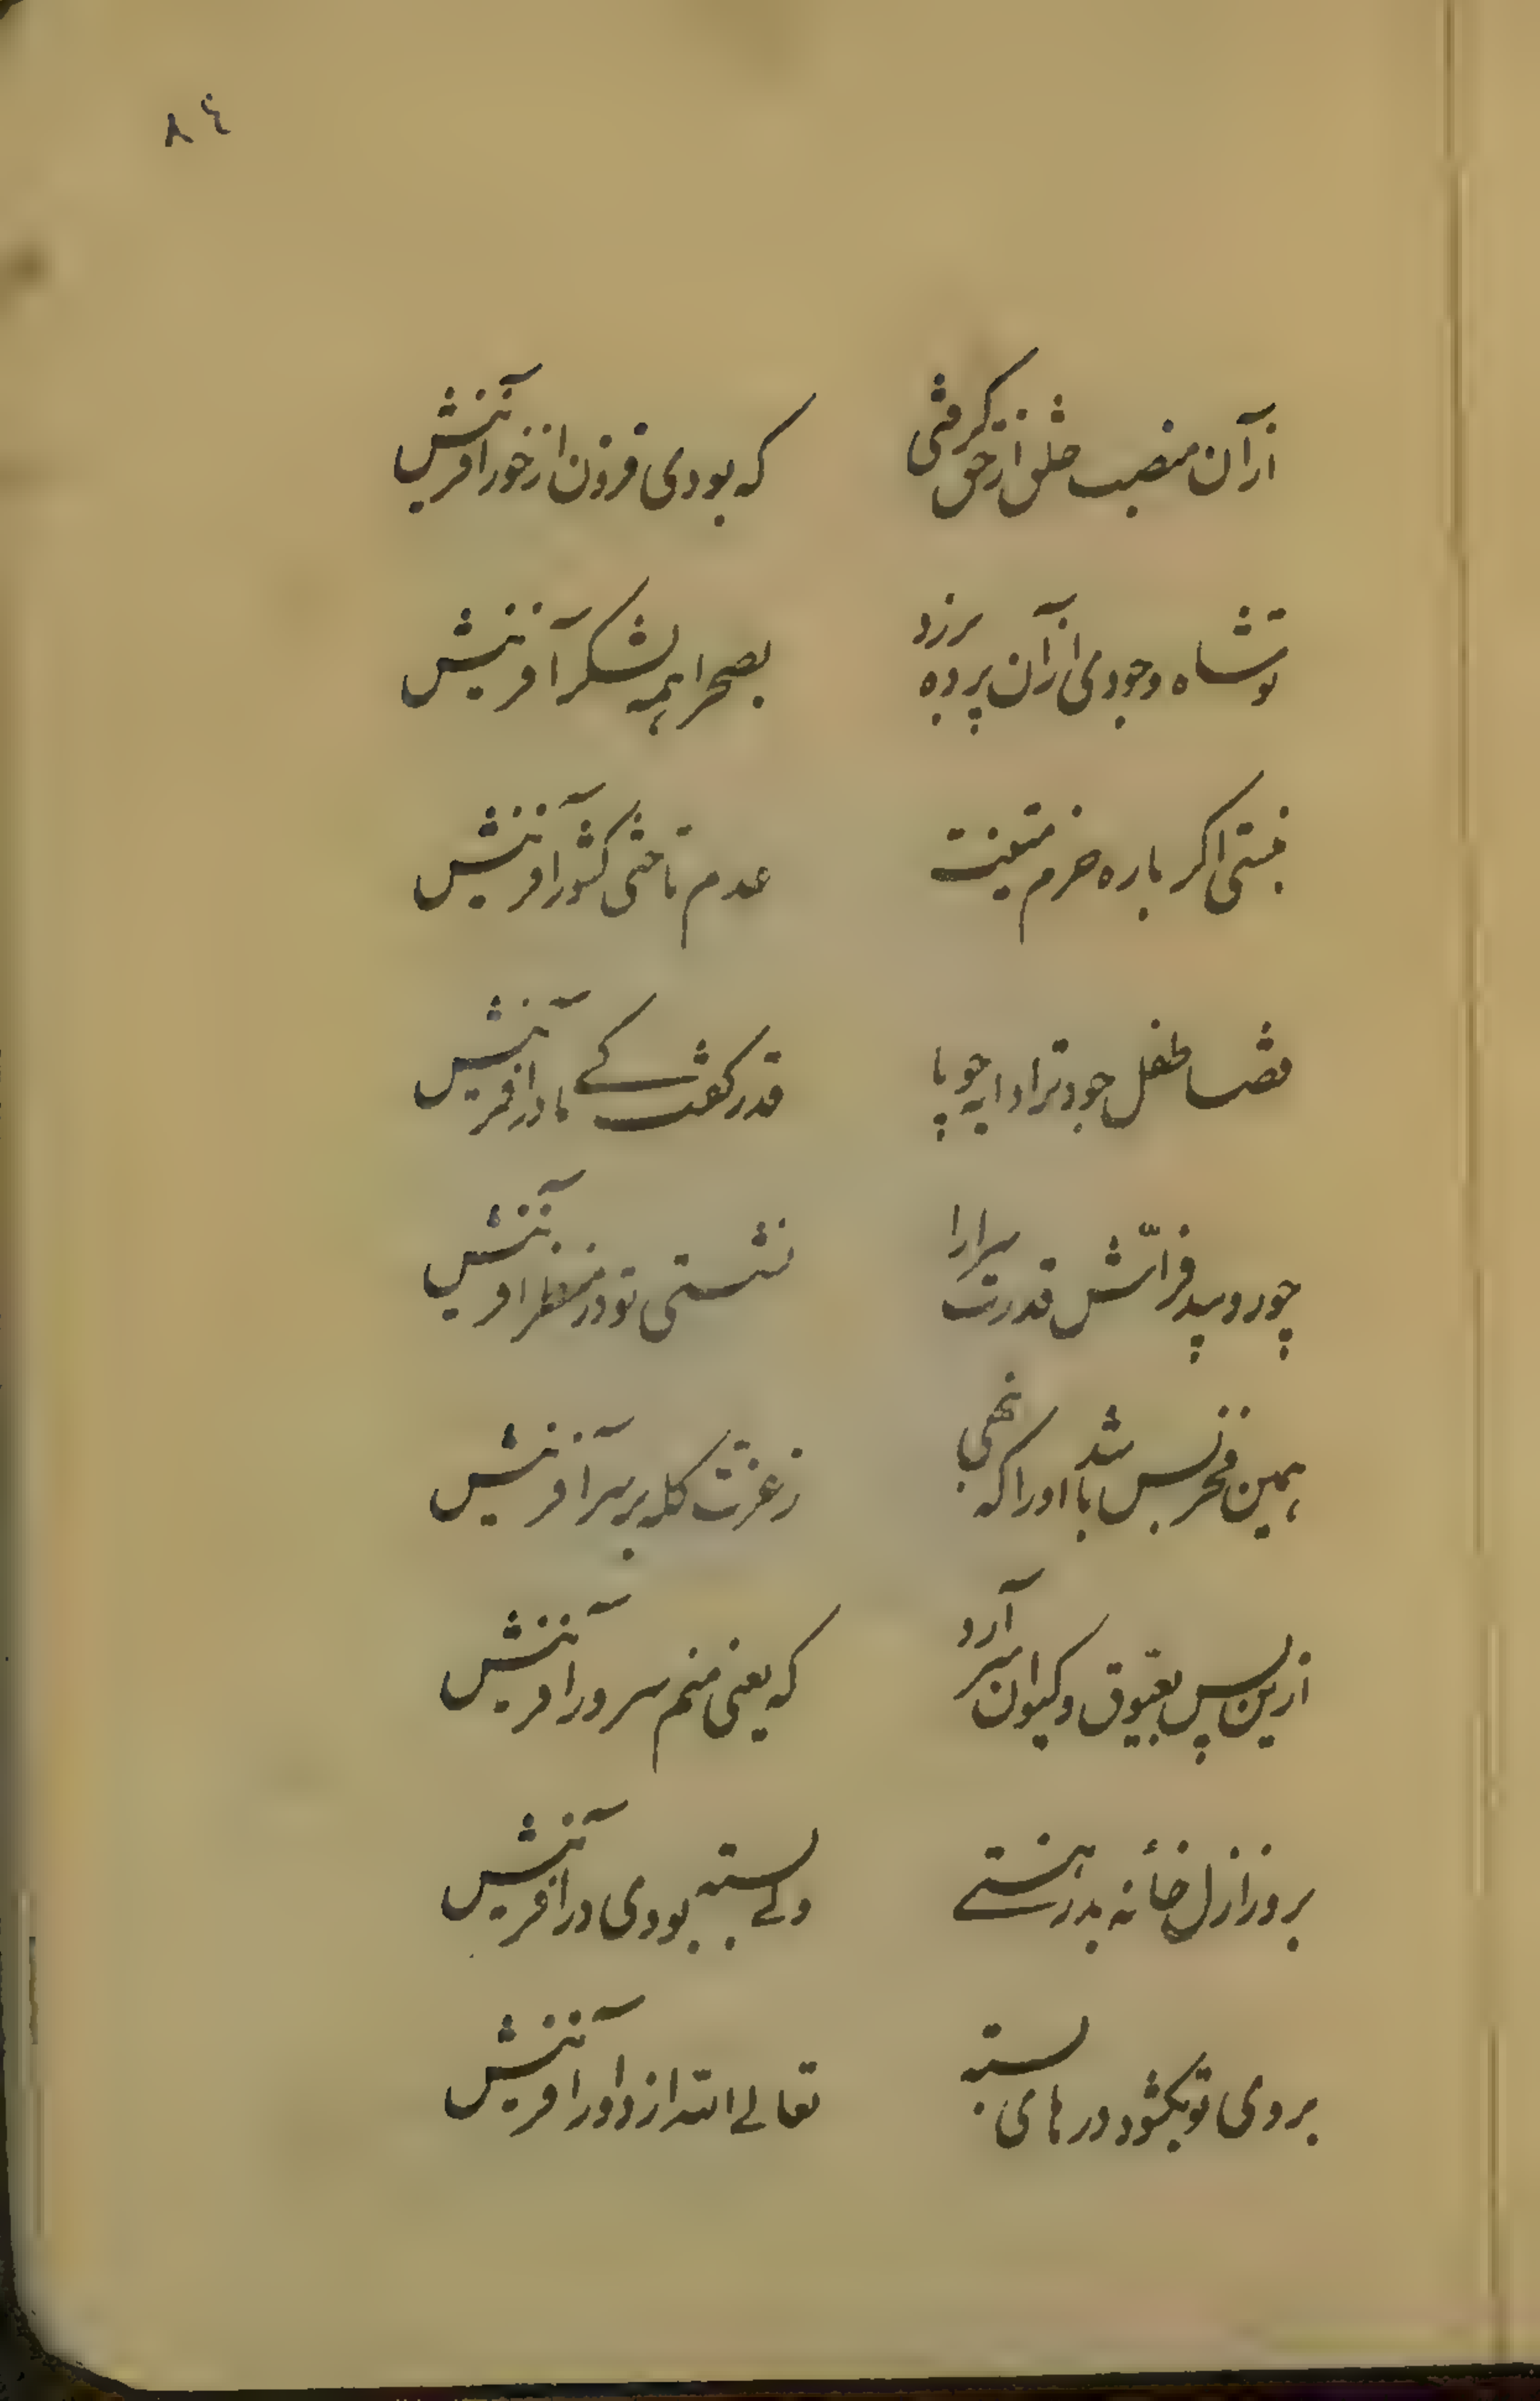 ٨٤
ازآن منصب خلق ازحق گرفتی که بودی فزون ازخور آفرینش
تو شاه وجودی ازآن پرده برزد بصحرا همه لشکر آفرینش
نبستی اکر باره حزم متینت عدم تاختی کشور آفرینش
قضا طفل جود ترا دایه جویا قدر گفت کے مادر آفرینش
چو روپید فراش قدرت سرا را نشستی تو در منظر آفرینش
همین فخر بس باشد او را که نهی زعزت کله بر سر آفرینش
ازین پس بعیوق و کیوان سر آرد که یعنی منم سرور آفرینش
بروز ازل خانه بدر هستے ولے بسته بودی در آفرینش
بروی تو بکشود درهای بسته تعالے الله از داور آفرینش